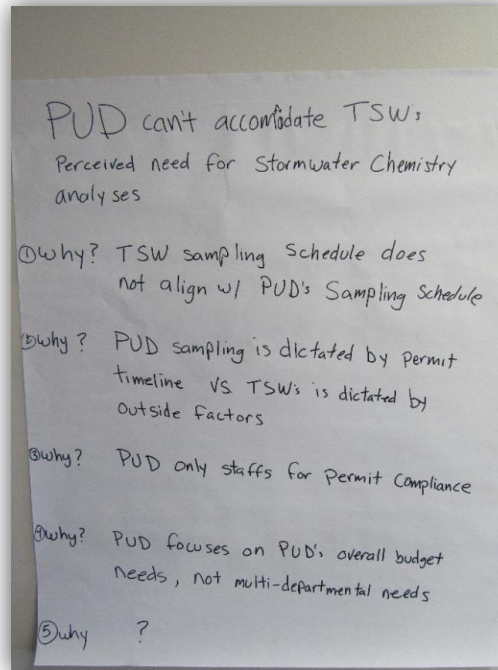 PUD can't accomodate TSW's
Perceived need for Stormwater Chemistry
analyses
① Why? TSW sampling Schedule does
not align w/ PUD's Sampling Schedule
② Why? PUD sampling is dictated by permit
timeline VS. TSW's is dictated by
outside factors
③ Why? PUD only staffs for Permit Compliance
④ Why? PUD focuses on PUD's overall budget
needs, not multi-departmental needs
⑤ Why ?